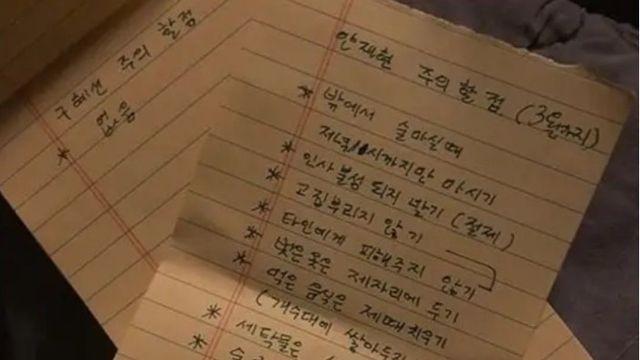 구혜선 주의 할점
* 없음
안재현 주의할점 (3월까지)
* 밖에서 술마실때
저녁 11시까지만 마시기
* 인사불성 되지 말기 (절제)
* 고집부리지 않기
* 타인에게 피해주지 않기
* 벗은 옷은 제자리에 두기
* 먹은 음식은 제때 치우기
(개수대에 쌓아두지
* 세탁물은
*